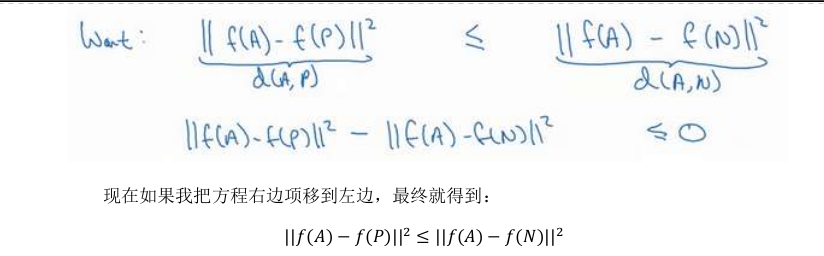 Want: || f(A) - f(P) ||² ≤ || f(A) - f(N) ||²
d(A,P) d(A,N)
||f(A)-f(P)||² - ||f(A)-f(N)||² ≤ 0
现在如果我把方程右边项移到左边，最终就得到：
||f(A) − f(P)||² ≤ ||f(A) − f(N)||²